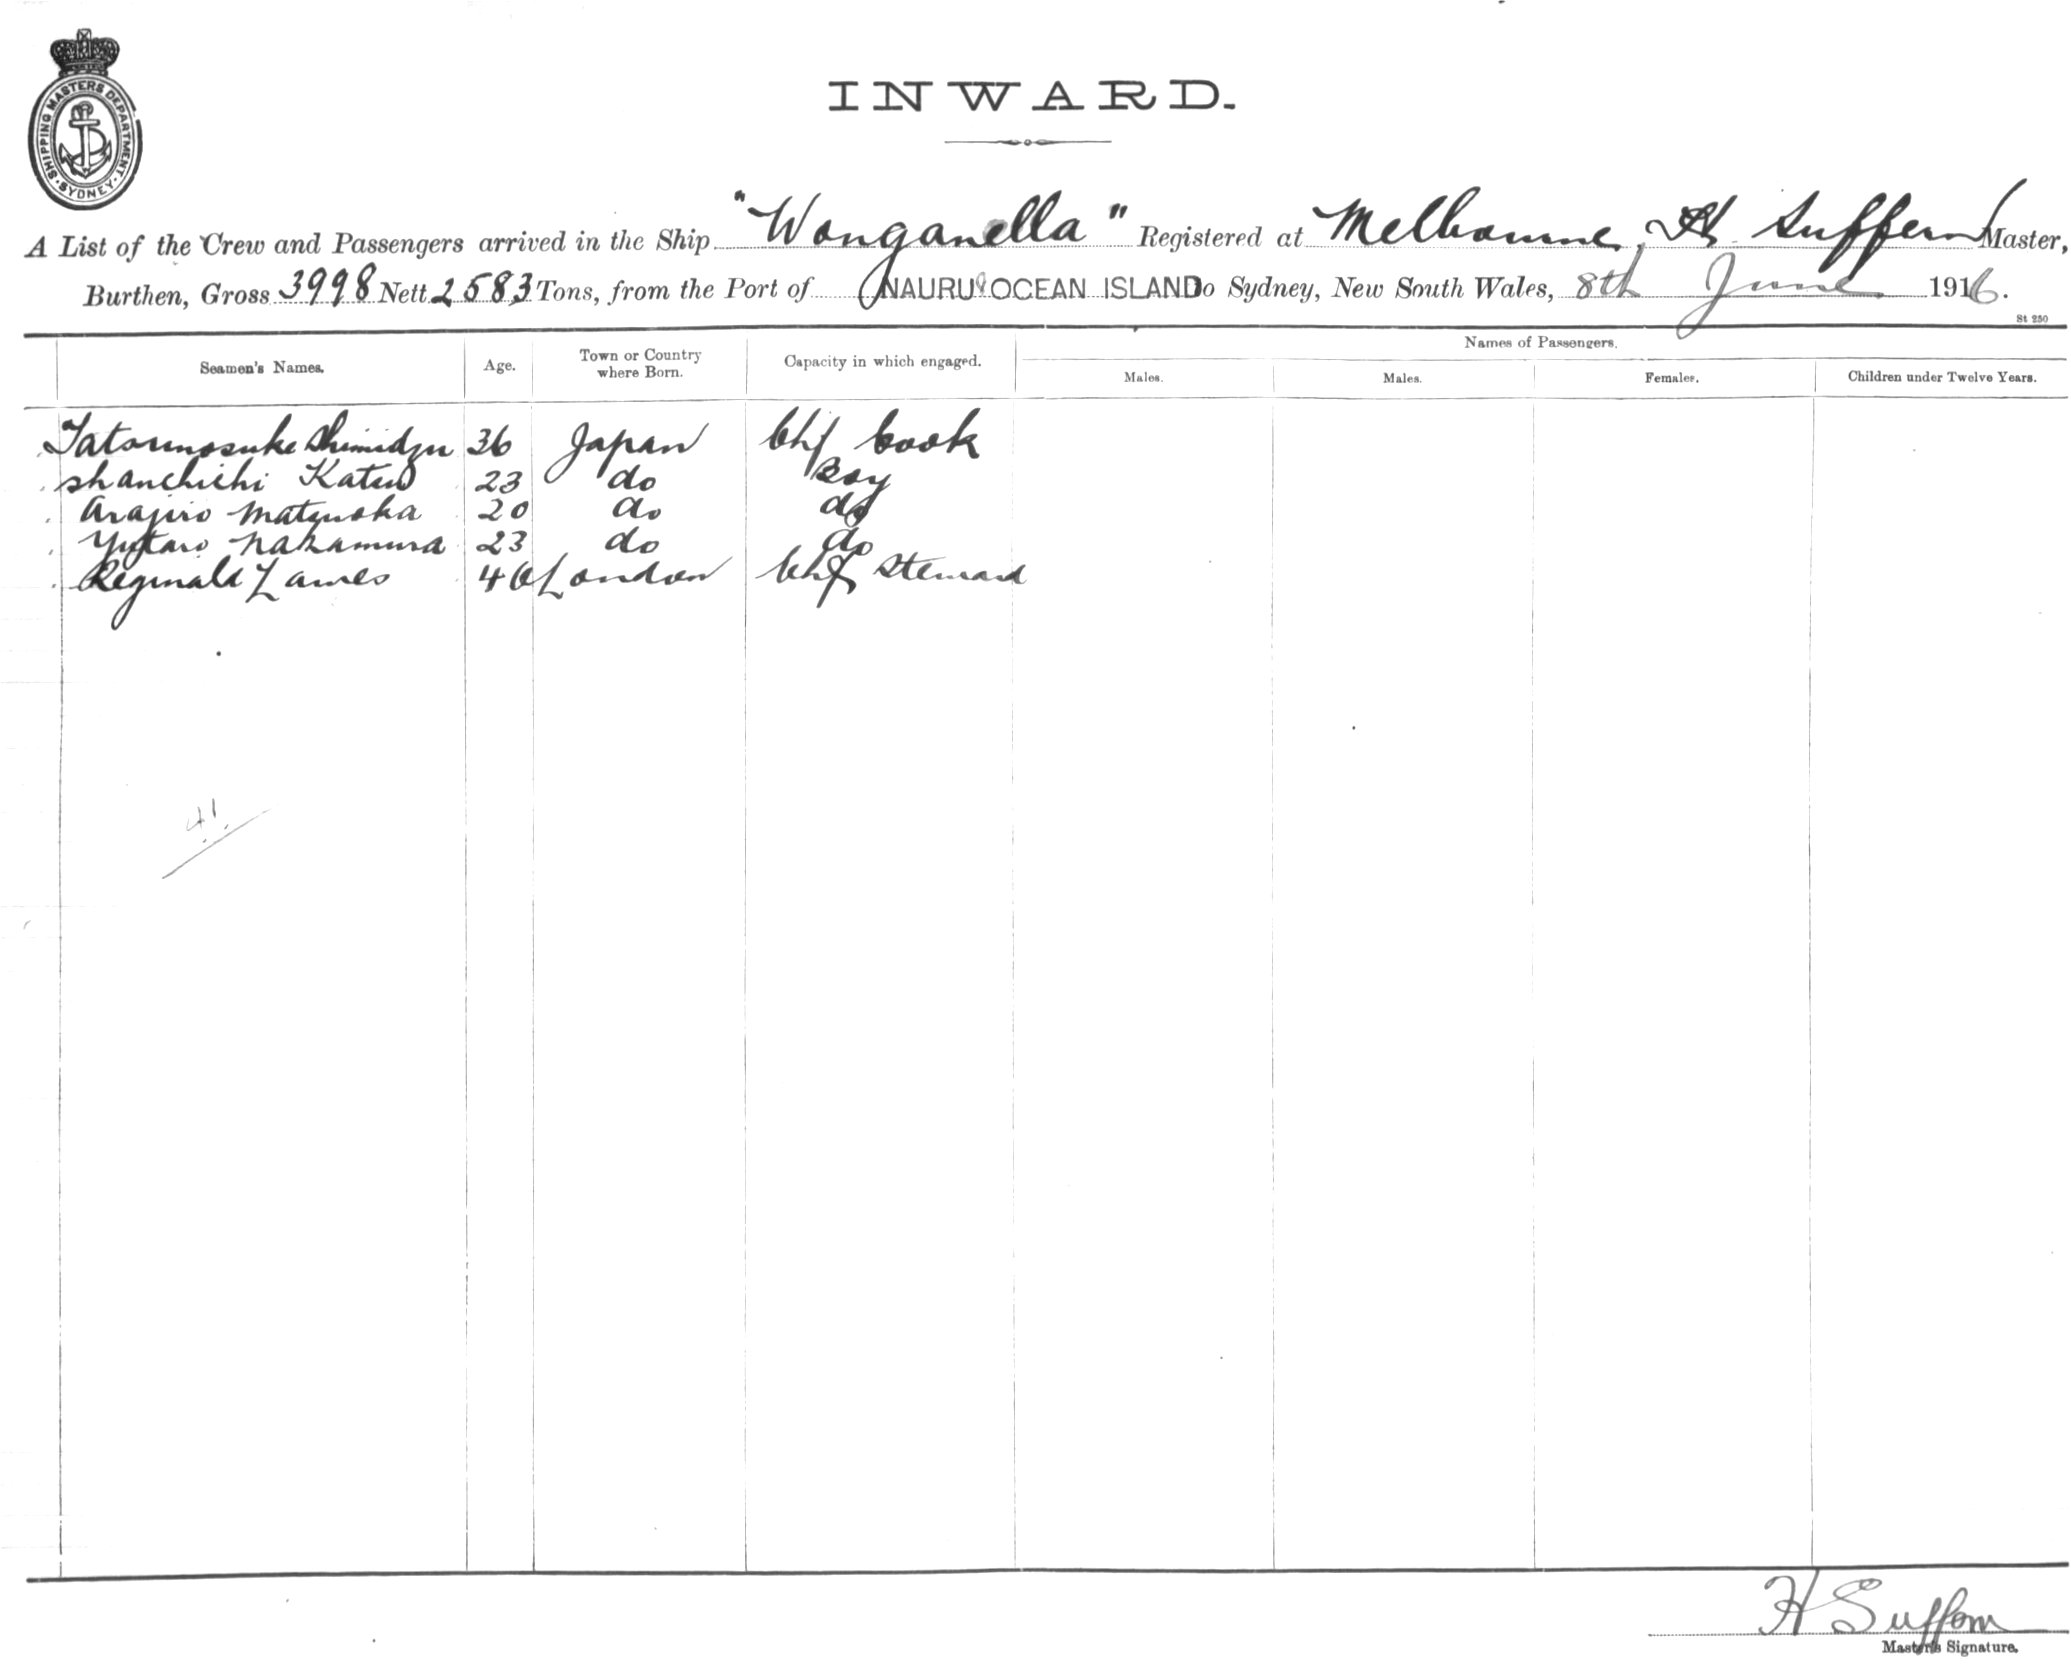 SHIPPING MASTERS DEPARTMENT. SYDNEY.
INWARD.
A List of the Crew and Passengers arrived in the Ship "Wonganella" Registered at Melbourne, H Suffern Master,
Burthen, Gross 3998 Nett 2583 Tons, from the Port of NAURU & OCEAN ISLAND to Sydney, New South Wales, 8th June 1916.
St 250
Names of Passengers.
Seamen's Names. Age. Town or Country where Born. Capacity in which engaged. Males. Males. Females. Children under Twelve Years.
Tatsunosuke Shimidzu 36 Japan Chf Cook
Shanchichi Kato 23 do Boy
Arajiro Matsuoka 20 do do
Yujtaro Nakamura 23 do do
Reginald James 46 London Chf Steward
41.
H Suffern
Master's Signature.